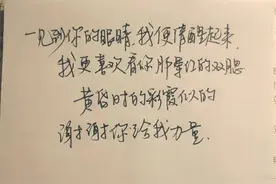 一见到你的眼睛,我便清醒起来,
我更喜欢看你那晕红的双腮
黄昏时的彩霞似的
谢谢你给我力量.